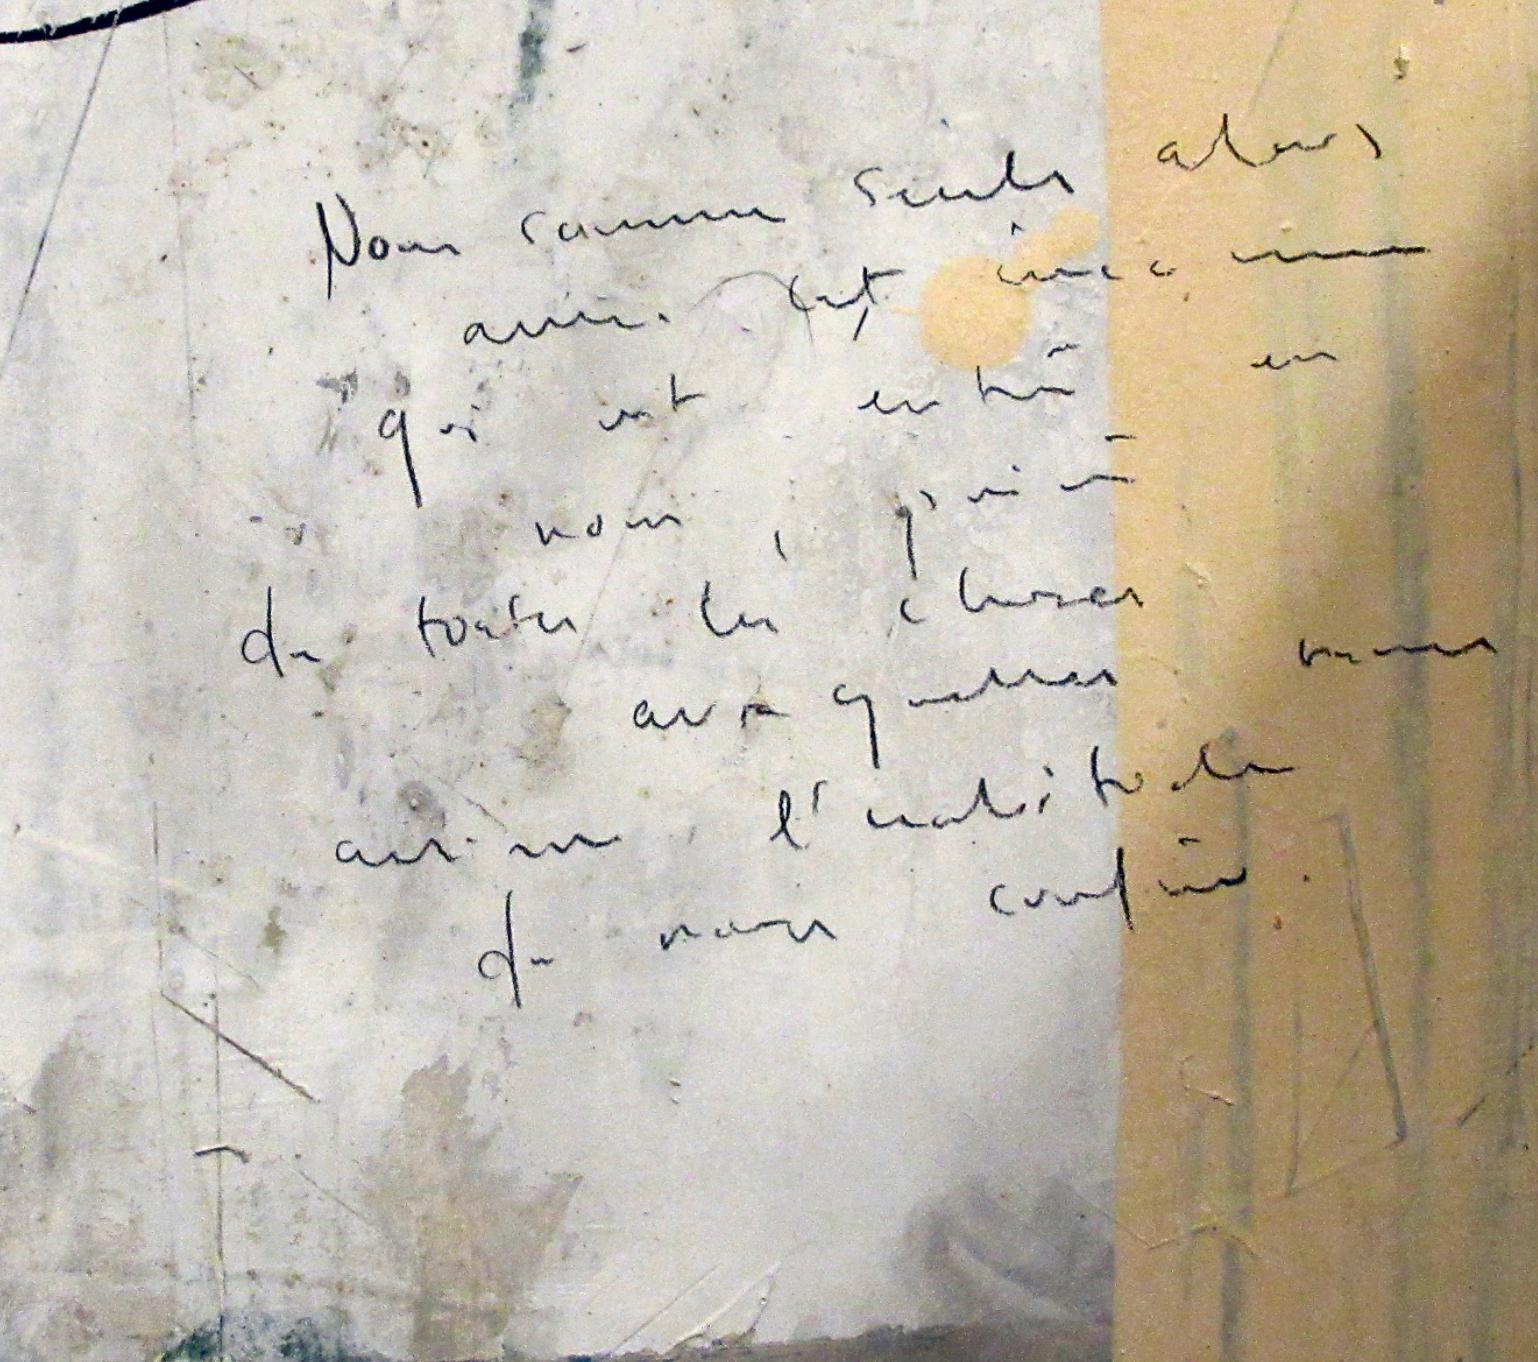 Nous sommes seuls alors
avec cet inconnu
qui est entré en
nous, privé
de toutes les choses
auxquelles nous
avions l'habitude
de nous confier.